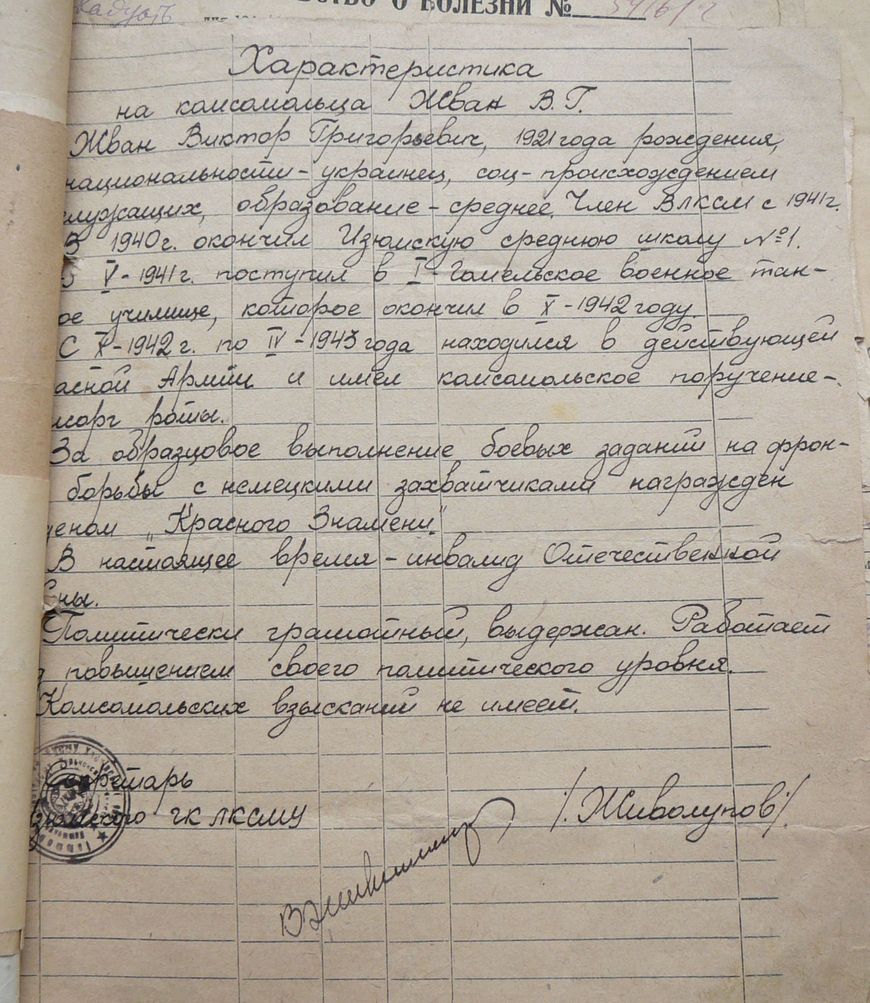 СТВО О БОЛЕЗНИ №
Характеристика
на комсомольца Жван В.Г.
Жван Виктор Григорьевич, 1921 года рождения,
национальности - украинец, соц-происхождением
служащих, образование - среднее. Член ВЛКСМ с 1941г.
В 1940г. окончил Изюмскую среднюю школу №1.
В V-1941г. поступил в I-Гомельское военное тан-
ое училище, которое окончил в X-1942 году.
С X-1942г. по IV-1943 года находился в действующей
асной Армии и имел комсомольское поручение-
морг роты.
За образцовое выполнение боевых заданий на фрон-
борьбы с немецкими захватчиками награжден
деном „Красного Знамени"
В настоящее время - инвалид Отечественной
ны.
Политически грамотный, выдержан. Работает
повышением своего политического уровня.
Комсомольских взысканий не имеет.
Секретарь
Изюмского ГК ЛКСМУ /Живолупов/